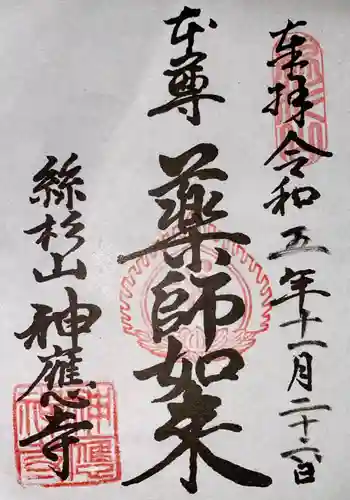 奉拝 令和五年十一月二十六日
本尊
藥師如来
絲杉山
神應寺